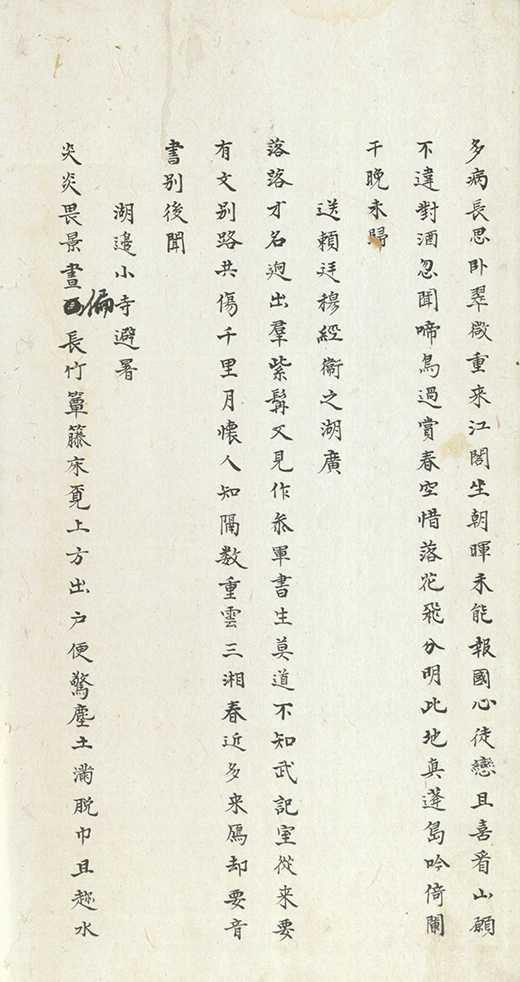 多病長思卧翠微重來江閣坐朝暉未能報國心徒戀且喜看山願
不違對酒忽聞啼鳥過賞春空惜落花飛分明此地真蓬島吟倚闌
干晚未歸
送賴廷穆經衞之湖廣
落路才名迥出羣紫髯又見作叅軍書生莫道不知武記室從来要
有文别路共傷千里月懷人知隔数重雲三湘春近多来鴈却要音
書别後聞
湖邉小寺避暑
炎炎畏景晝偏長竹簟籐床覔上方出户便驚塵土滿脱巾且趂水